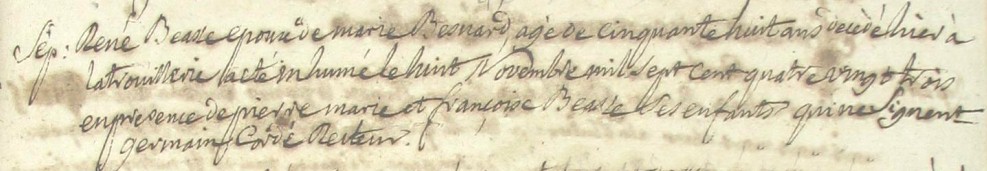 Sép: René Beasse epoux de marie Besnard, agé de cinquante huit ans decedé hier à
latrouillerie a eté inhumé le huit Novembre mil sept cent quatre vingt trois
en presence de pierre marie et françoise Beasse Ses enfants qui ne Signent
germain Recteur.